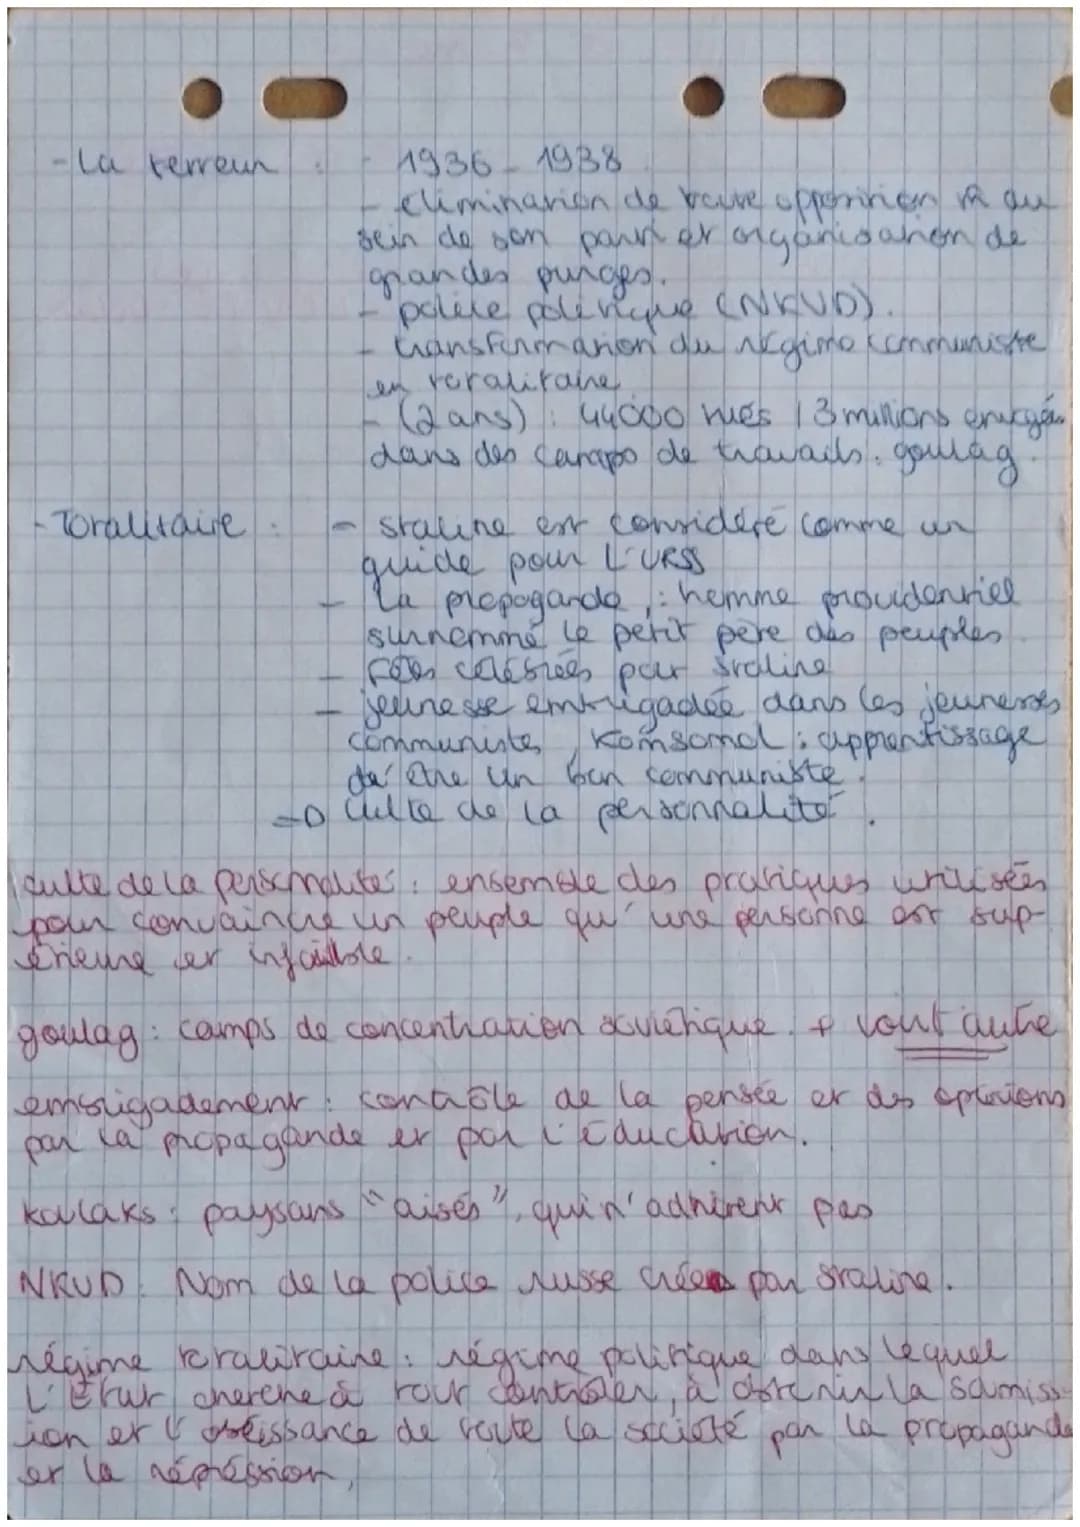 - La terreur : - 1936 - 1938
- élimination de toute opposition au
sein de son parti et organisation de
grandes purges.
- police politique (NKVD).
- transformation du régime communiste
en totalitaire
- (2 ans) : 44000 tués | 3 millions
dans des camps de travails : goulag.
- Totalitaire : - Staline est considéré comme un
guide pour l'URSS
- La propagande, : homme providentiel
surnommé le petit père des peuples
- Fêtes célébrées pour Staline
- jeunesse embrigadée dans les jeunesses
communistes, Komsomol : apprentissage
être un bon communiste.
=> Culte de la personnalité.
culte de la personnalité : ensemble des pratiques utilisées
pour convaincre un peuple qu'une personne est sup-
érieure et infaillible.
goulag : camps de concentration soviétique. + autre
embrigadement : contrôle de la pensée et des opinions
par la propagande et par l'éducation.
koulaks : paysans "aisés", qui n'adhèrent pas
NKVD : Nom de la police russe créée par Staline.
régime totalitaire : régime politique dans lequel
L'État cherche à tout contrôler, à obtenir la soumiss-
ion et l'obéissance de toute la société par la propagande
et la répréssion,